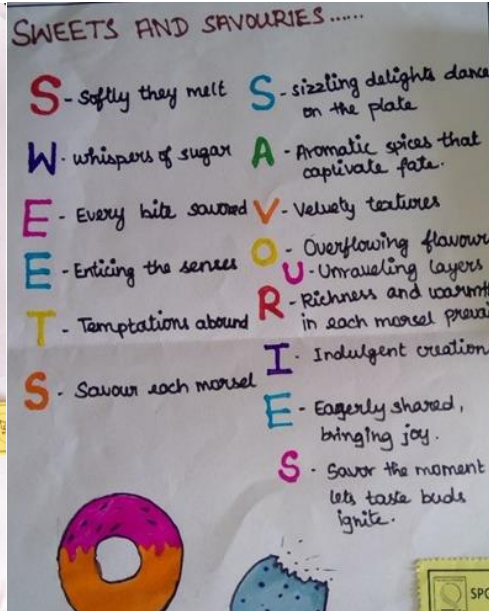 SWEETS AND SAVOURIES......
S - Softly they melt
W - whispers of sugar
E - Every bite savored
E - Enticing the senses
T - Temptations abound
S - Savour each morsel
S - sizzling delights dance
on the plate
A - Aromatic spices that
captivate fate.
V - Velvety textures
O - Overflowing flavour
U - Unraveling layers
R - Richness and warmth
in each morsel
I - Indulgent creation
E - Eagerly shared,
bringing joy.
S - Savor the moment
lets taste buds
ignite.
SPO